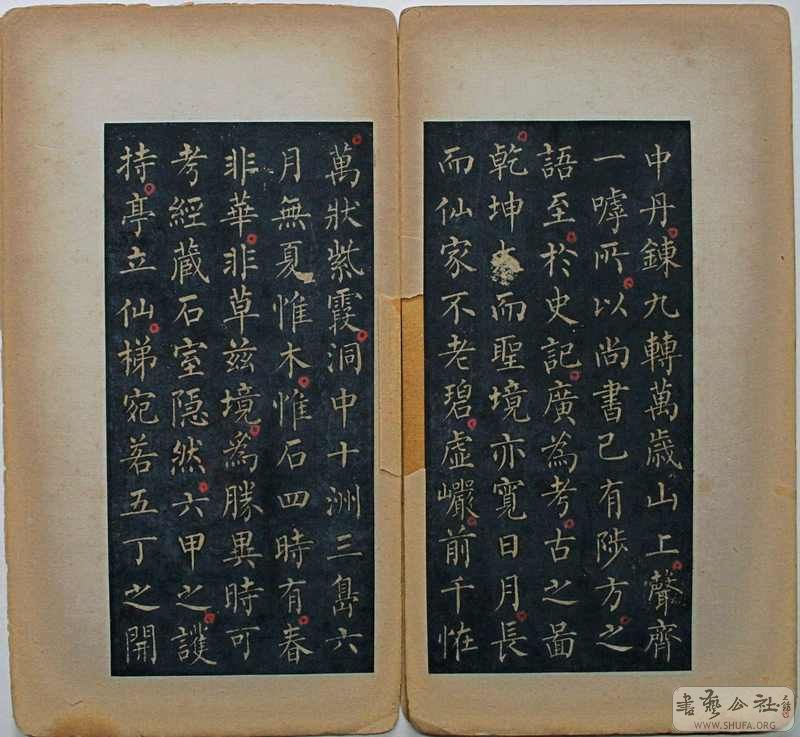 中丹鍊九轉萬歲山上聲齊
一嘑所以尚書已有陟方之
語至於史記廣為考古之啚
乾坤大而聖境亦寬日月長
而仙家不老碧虛巗前千恠
萬狀紫霞洞中十洲三島六
月無夏惟木惟石四時有春
非華非草茲境為勝異時可
考經蔵石室隠然六甲之護
持亭立仙梯宛若五丁之開
書藝公社
WWW.SHUFA.ORG